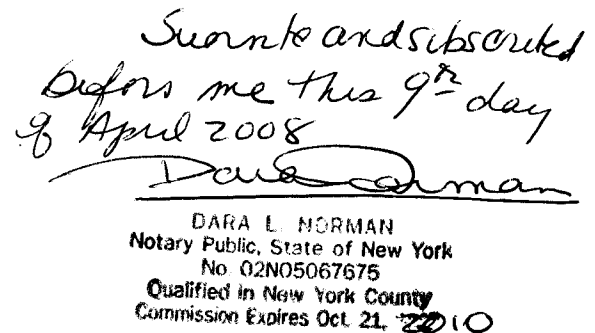 Sworn to and subscribed
before me this 9th day
of April 2008
Dara Norman
DARA L. NORMAN
Notary Public, State of New York
No. 02NO5067675
Qualified in New York County
Commission Expires Oct. 21, 2010